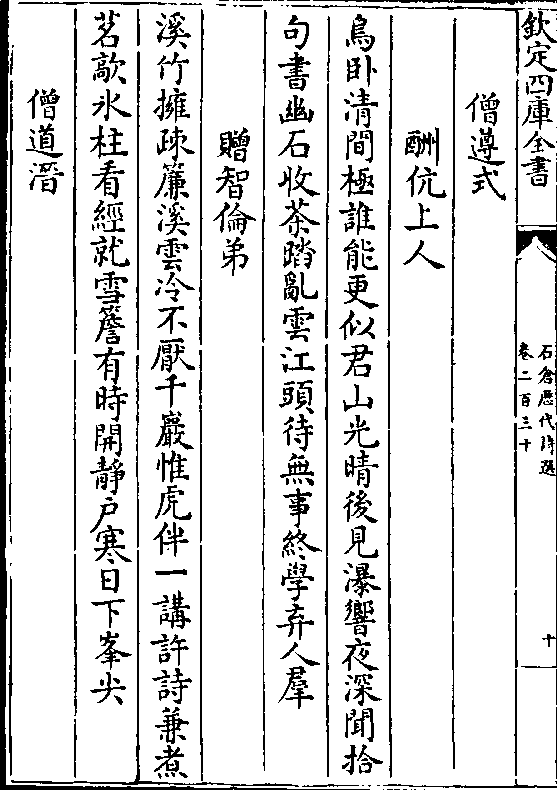 欽定四庫全書
石倉歷代詩選
卷二百三十
十
僧遵式
酬伉上人
鳥卧清間極誰能更似君山光晴後見瀑響夜深聞拾
句書幽石收茶踏亂雲江頭待無事終學弃人羣
贈智倫弟
溪竹擁疎簾溪雲冷不厭千巖惟虎伴一講許詩兼煮
茗敲氷柱看經就雪簷有時開靜戶寒日下峯尖
僧道潛